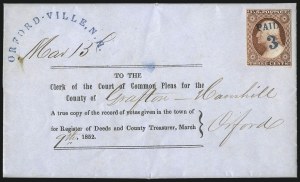 ORFORD-VILLE, N.H.
PAID
3
Mar 15
TO THE
Clerk of the Court of Common Pleas for the
County of Grafton - Haverhill
A true copy of the record of votes given in the town of
Orford
for Register of Deeds and County Treasurer, March
9th, 1852.